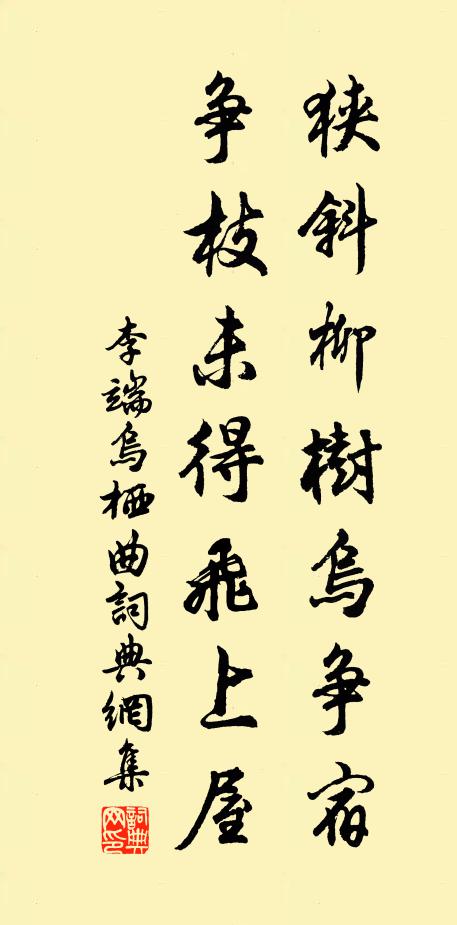 狭斜柳樹烏争宿
争枝未得飛上屋
李端烏栖曲詞典網集
詞典
网印